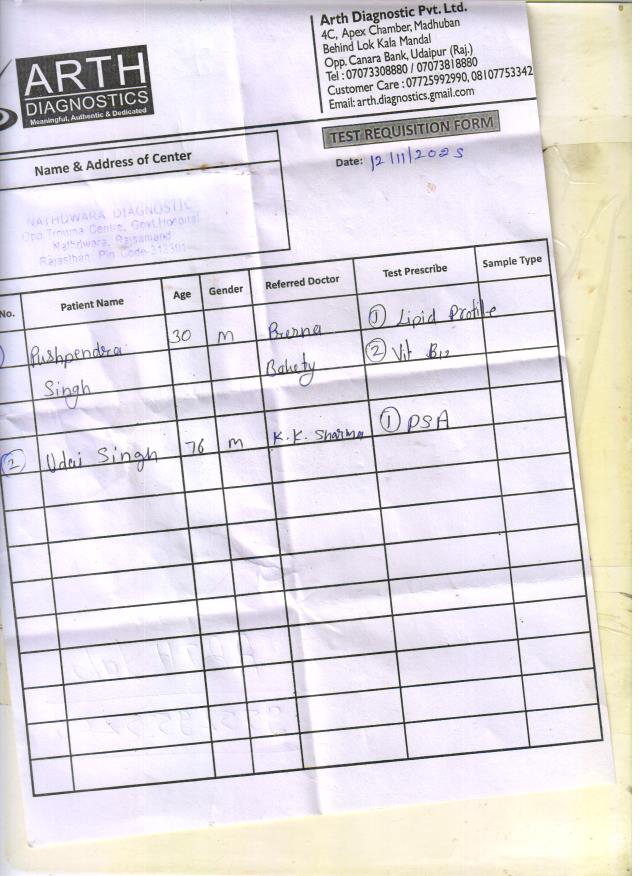 Arth Diagnostic Pvt. Ltd.
4C, Apex Chamber, Madhuban
Behind Lok Kala Mandal
Opp. Canara Bank, Udaipur (Raj.)
Tel : 07073308880 / 07073818880
Customer Care : 07725992990, 08107753342
Email: arth.diagnostics.gmail.com
ARTH
DIAGNOSTICS
Meaningful, Authentic & Dedicated
TEST REQUISITION FORM
Date: 12/11/2025
Name & Address of Center
NATHDWARA DIAGNOSTIC
Opp Trouma Centre, Govt Hospital
Nathdwara, Rajsamand
Rajasthan, Pin Code-313301
No. Patient Name Age Gender Referred Doctor Test Prescribe Sample Type
Pushpendra 30 m Prerna ① Lipid Profile
Singh Bahety ② Vit B12
② Udai Singh 76 m K.K. Sharma ① PSA